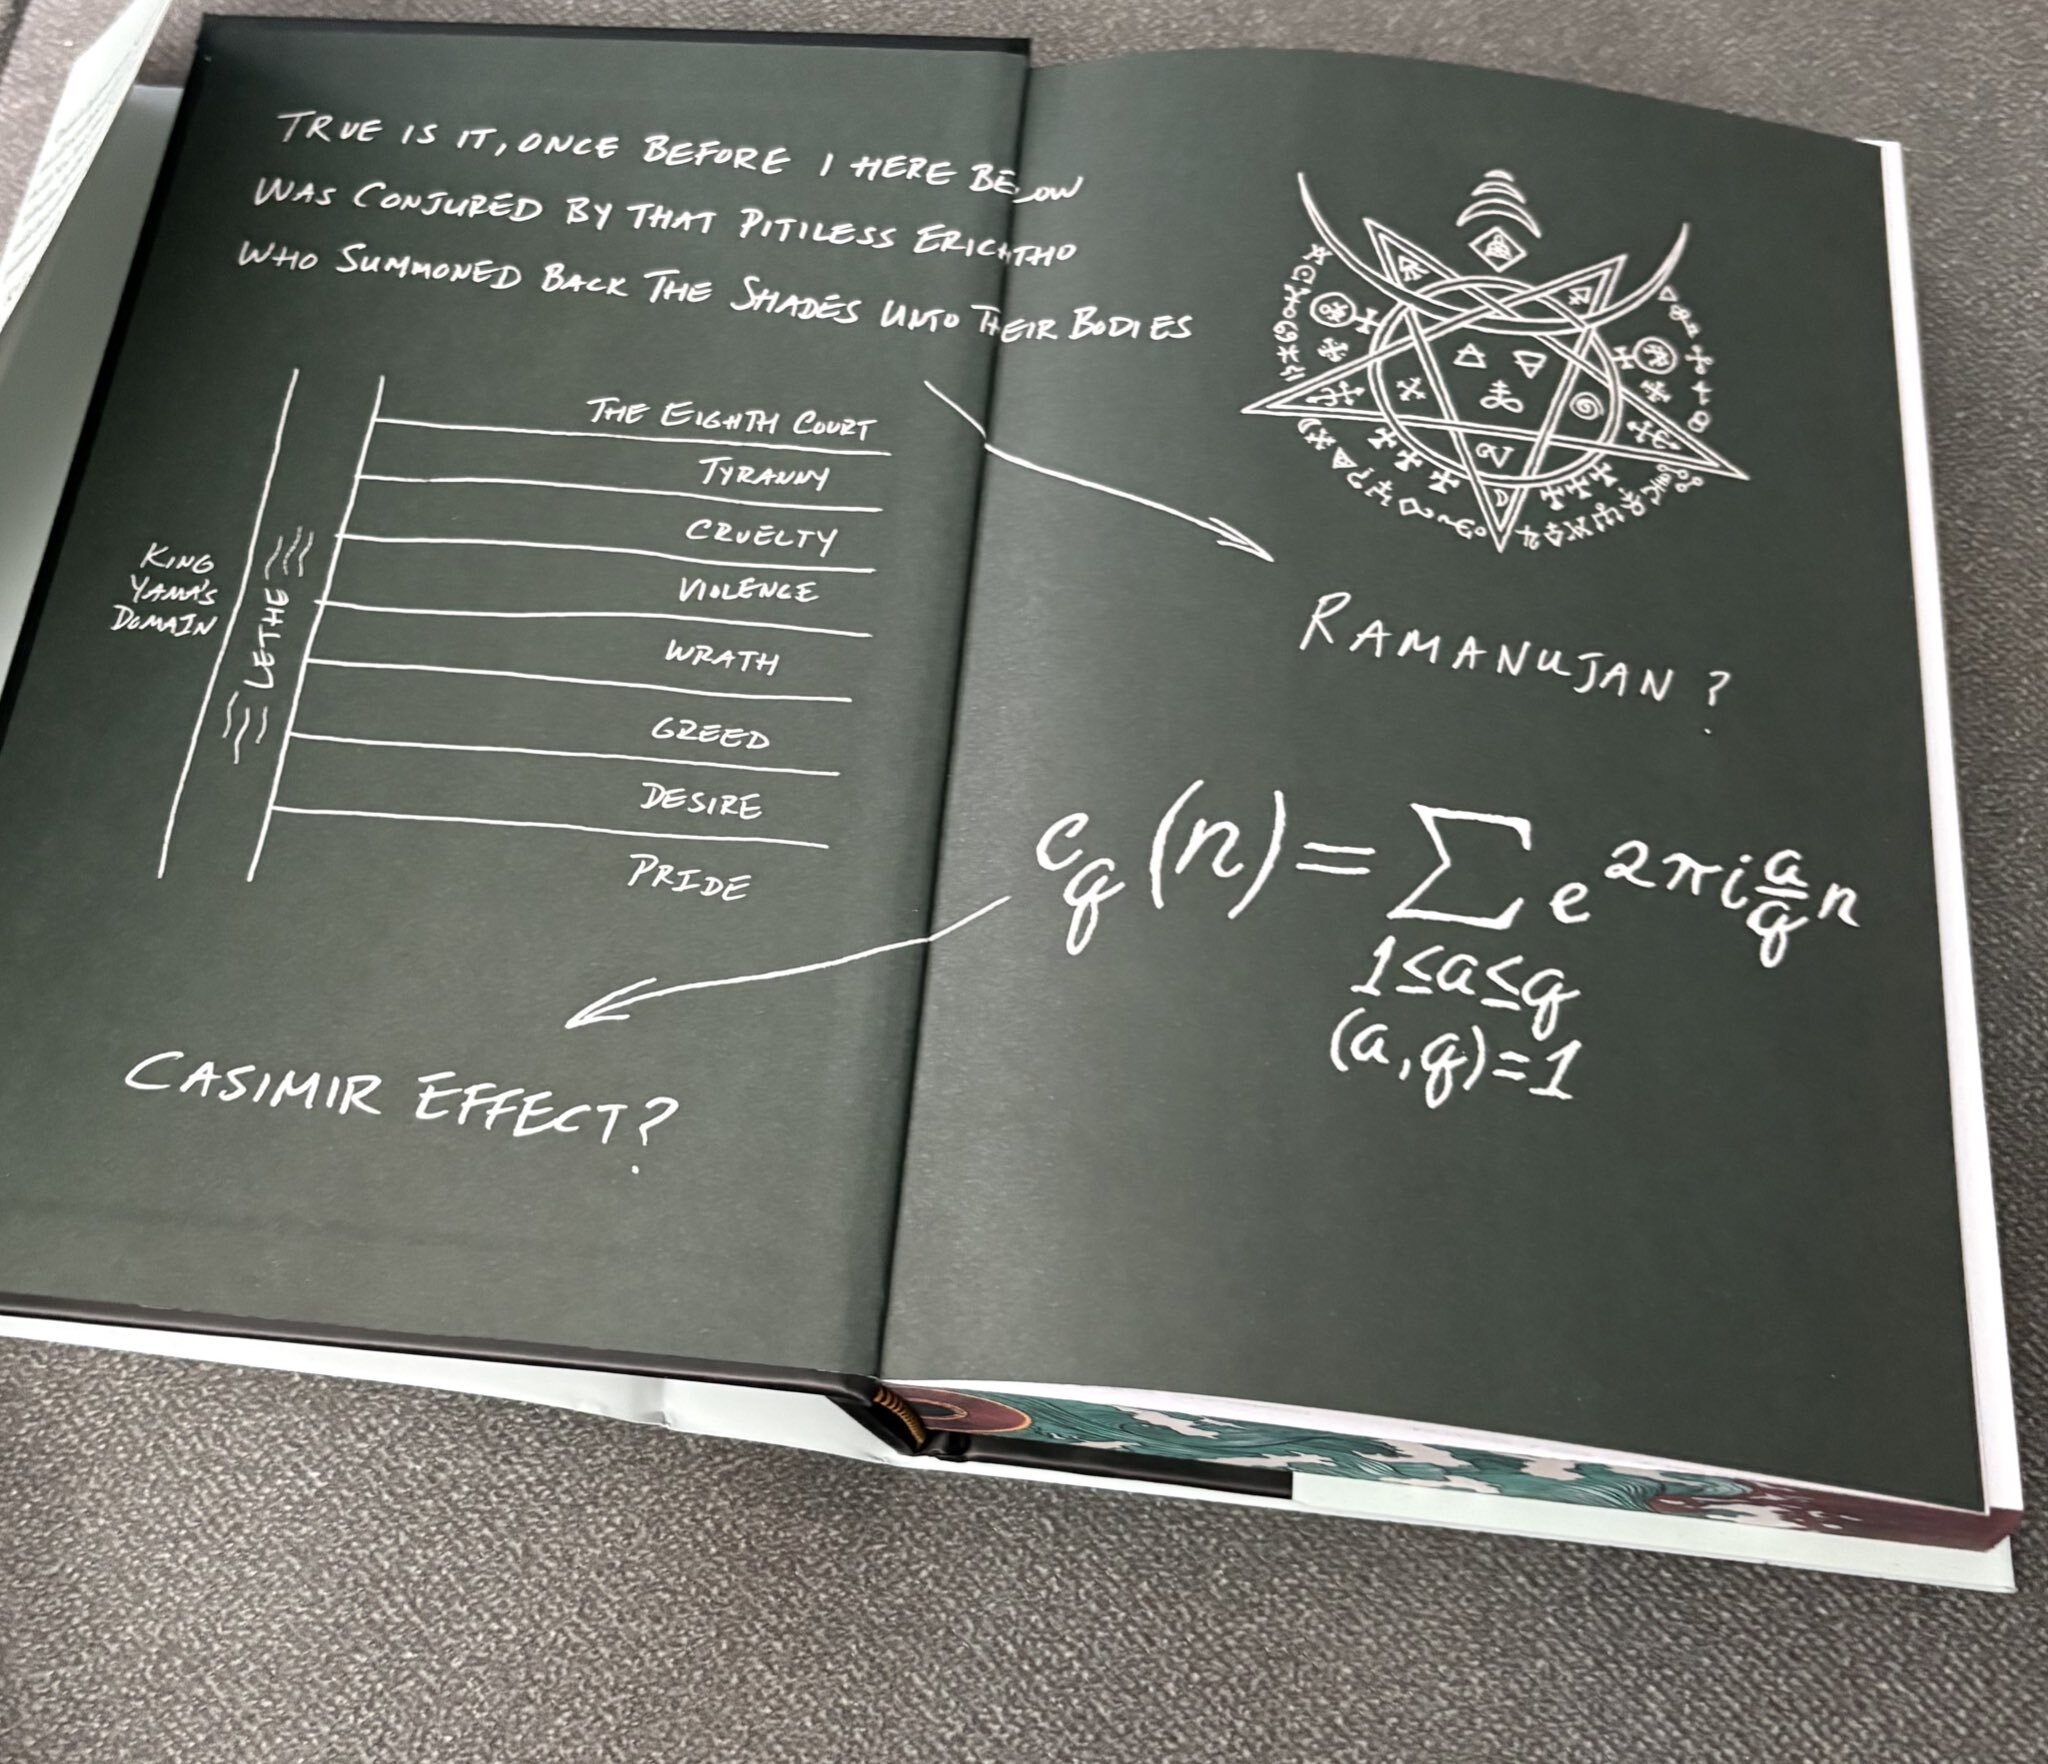 TRUE IS IT, ONCE BEFORE I HERE BELOW
WAS CONJURED BY THAT PITILESS ERICHTHO
WHO SUMMONED BACK THE SHADES UNTO THEIR BODIES
THE EIGHTH COURT
TYRANNY
CRUELTY
VIOLENCE
WRATH
GREED
DESIRE
PRIDE
KING
YAMA'S
DOMAIN
LETHE
CASIMIR EFFECT?
RAMANUJAN?
c_q(n) = ∑ e^{2πi\frac{a}{q}n}
1≤a≤q
(a,q)=1